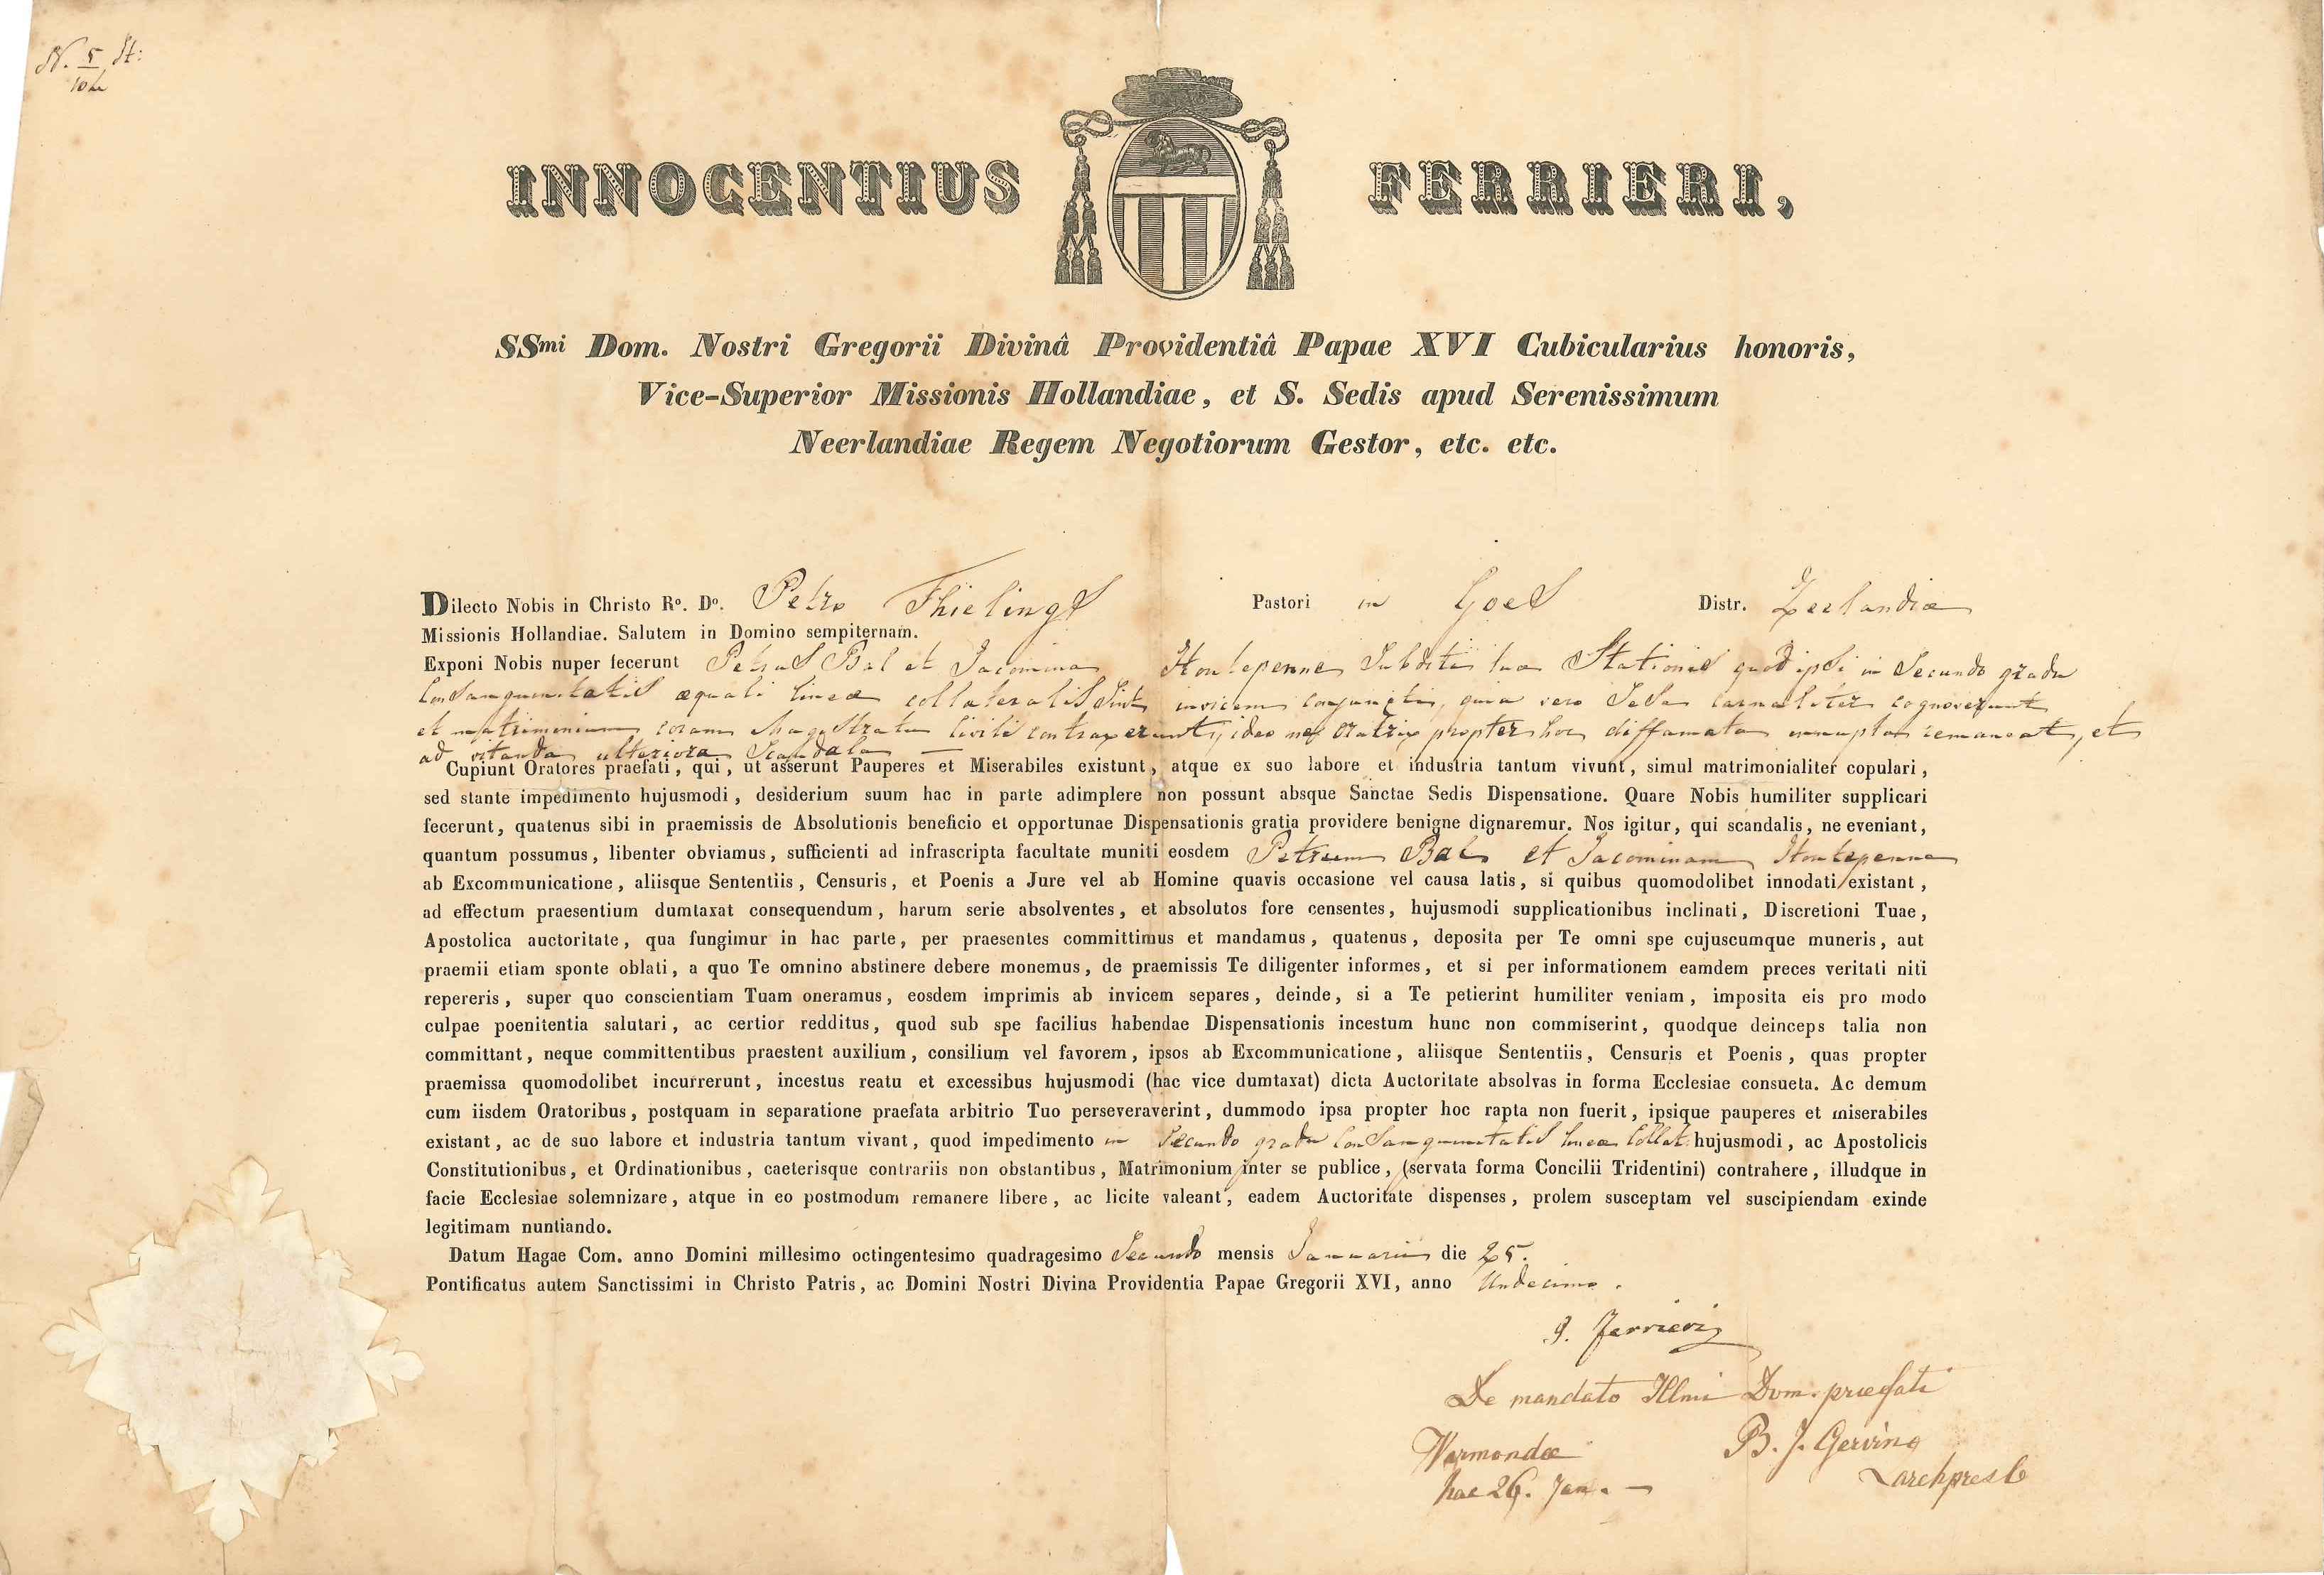 N. 5 St:
INNOCENTIUS FERRIERI,
SSmi Dom. Nostri Gregorii Divinâ Providentiâ Papae XVI Cubicularius honoris,
Vice-Superior Missionis Hollandiae, et S. Sedis apud Serenissimum
Neerlandiae Regem Negotiorum Gestor, etc. etc.
Dilecto Nobis in Christo Rº. Dº. Petro Thielings Pastori in Goes Distr. Zeelandiæ
Missionis Hollandiae. Salutem in Domino sempiternam.
Exponi Nobis nuper fecerunt Petrus Bal et Jacomina Houtepenne Subditi tuæ Stationis quod ipsi in Secundo gradu
Consanguinitatis æquali lineæ collateralis sint invicem conjuncti, quia vero Sese carnaliter cognoverunt
et matrimonium coram Magistratu Civili contraxerunt, ideo ne oratrix propter hoc diffamata innupta remaneat, et
ad vitanda ulteriora Scandala —
Cupiunt Oratores praefati, qui, ut asserunt Pauperes et Miserabiles existunt, atque ex suo labore et industria tantum vivunt, simul matrimonialiter copulari,
sed stante impedimento hujusmodi, desiderium suum hac in parte adimplere non possunt absque Sanctae Sedis Dispensatione. Quare Nobis humiliter supplicari
fecerunt, quatenus sibi in praemissis de Absolutionis beneficio et opportunae Dispensationis gratia providere benigne dignaremur. Nos igitur, qui scandalis, ne eveniant,
quantum possumus, libenter obviamus, sufficienti ad infrascripta facultate muniti eosdem Petrum Bal et Jacominam Houtepenne
ab Excommunicatione, aliisque Sententiis, Censuris, et Poenis a Jure vel ab Homine quavis occasione vel causa latis, si quibus quomodolibet innodati existant,
ad effectum praesentium dumtaxat consequendum, harum serie absolventes, et absolutos fore censentes, hujusmodi supplicationibus inclinati, Discretioni Tuae,
Apostolica auctoritate, qua fungimur in hac parte, per praesentes committimus et mandamus, quatenus, deposita per Te omni spe cujuscumque muneris, aut
praemii etiam sponte oblati, a quo Te omnino abstinere debere monemus, de praemissis Te diligenter informes, et si per informationem eamdem preces veritati niti
repereris, super quo conscientiam Tuam oneramus, eosdem imprimis ab invicem separes, deinde, si a Te petierint humiliter veniam, imposita eis pro modo
culpae poenitentia salutari, ac certior redditus, quod sub spe facilius habendae Dispensationis incestum hunc non commiserint, quodque deinceps talia non
committant, neque committentibus praestent auxilium, consilium vel favorem, ipsos ab Excommunicatione, aliisque Sententiis, Censuris et Poenis, quas propter
praemissa quomodolibet incurrerunt, incestus reatu et excessibus hujusmodi (hac vice dumtaxat) dicta Auctoritate absolvas in forma Ecclesiae consueta. Ac demum
cum iisdem Oratoribus, postquam in separatione praefata arbitrio Tuo perseveraverint, dummodo ipsa propter hoc rapta non fuerit, ipsique pauperes et miserabiles
existant, ac de suo labore et industria tantum vivant, quod impedimento in Secundo gradu Consanguinitatis lineæ Collat. hujusmodi, ac Apostolicis
Constitutionibus, et Ordinationibus, caeterisque contrariis non obstantibus, Matrimonium inter se publice, (servata forma Concilii Tridentini) contrahere, illudque in
facie Ecclesiae solemnizare, atque in eo postmodum remanere libere, ac licite valeant, eadem Auctoritate dispenses, prolem susceptam vel suscipiendam exinde
legitimam nuntiando.
Datum Hagae Com. anno Domini millesimo octingentesimo quadragesimo Secundo mensis Januarii die 25.
Pontificatus autem Sanctissimi in Christo Patris, ac Domini Nostri Divina Providentia Papae Gregorii XVI, anno Undecimo.
J. Ferrieri
De mandato Illmi Dom. præfati
Warmondæ B. J. Gerving
hac 26. Jan. — archpresb